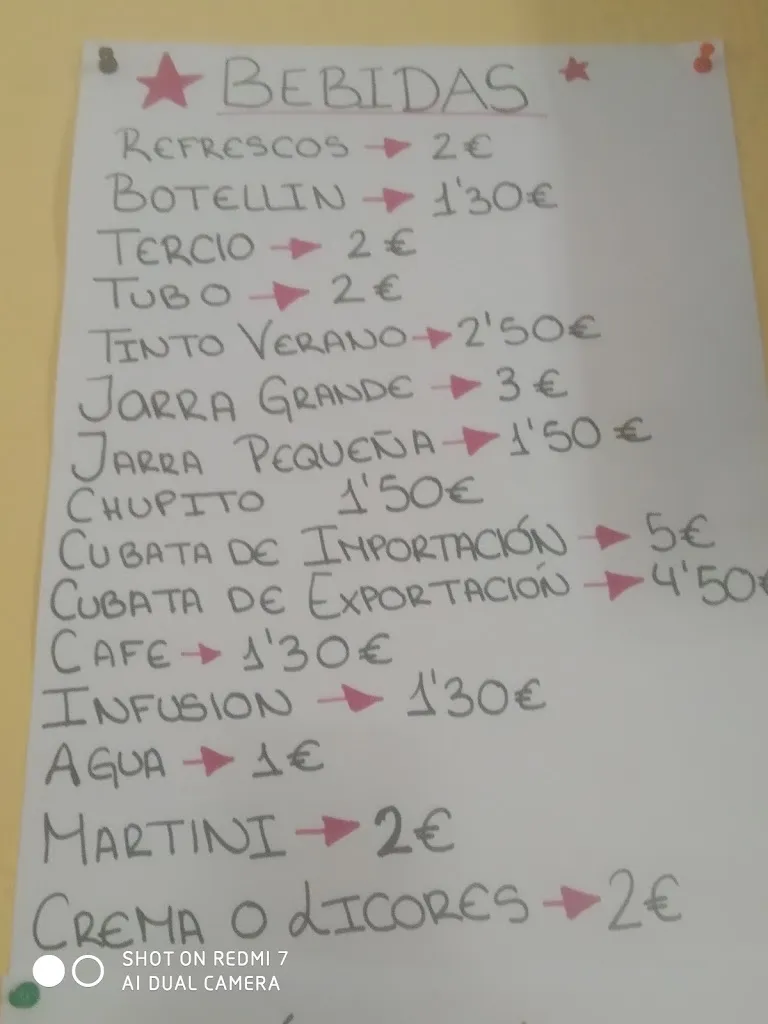 BEBIDAS
REFRESCOS → 2€
BOTELLIN → 1'30€
TERCIO → 2€
TUBO → 2€
TINTO VERANO → 2'50€
JARRA GRANDE → 3€
JARRA PEQUEÑA → 1'50€
CHUPITO 1'50€
CUBATA DE IMPORTACIÓN → 5€
CUBATA DE EXPORTACIÓN → 4'50€
CAFE → 1'30€
INFUSION → 1'30€
AGUA → 1€
MARTINI → 2€
CREMA O LICORES → 2€
SHOT ON REDMI 7
AI DUAL CAMERA